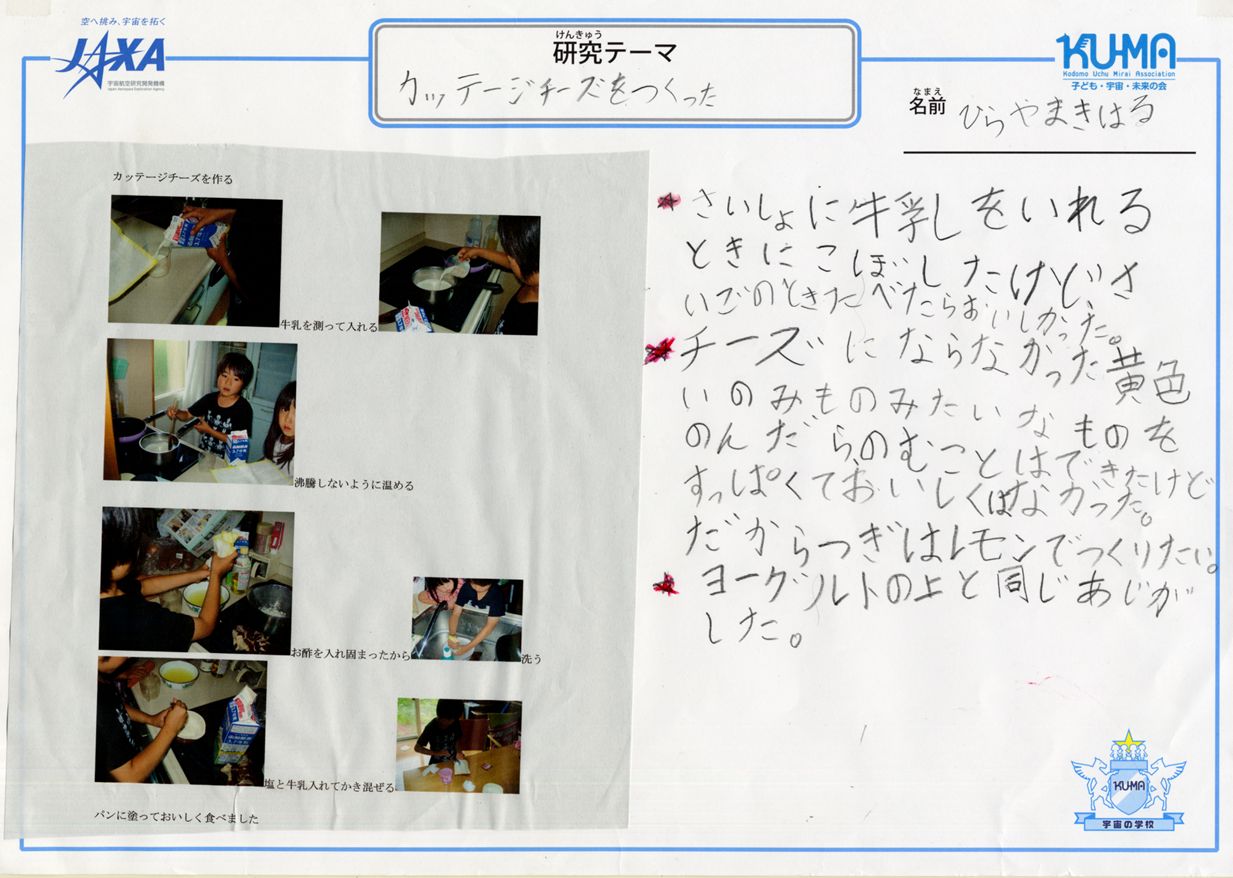 空へ挑み、宇宙を拓く
JAXA
宇宙航空研究開発機構
Japan Aerospace Exploration Agency
けんきゅう
研究テーマ
カッテージチーズをつくった
KU-MA
Kodomo Uchu Mirai Association
子ども・宇宙・未来の会
なまえ
名前 ひらやまきはる
カッテージチーズを作る
牛乳を測って入れる
沸騰しないように温める
お酢を入れ固まったから
洗う
塩と牛乳入れてかき混ぜる
パンに塗っておいしく食べました
さいしょに牛乳をいれる
ときにこぼしたけど、さ
いごのときたべたらおいしかった。
チーズにならなかった黄色
いのみものみたいなものを
のんだら、のむことはできたけど
すっぱくておいしくはなかった。
だからつぎはレモンでつくりたい。
ヨーグルトの上と同じあじが
した。
KUMA
宇宙の学校